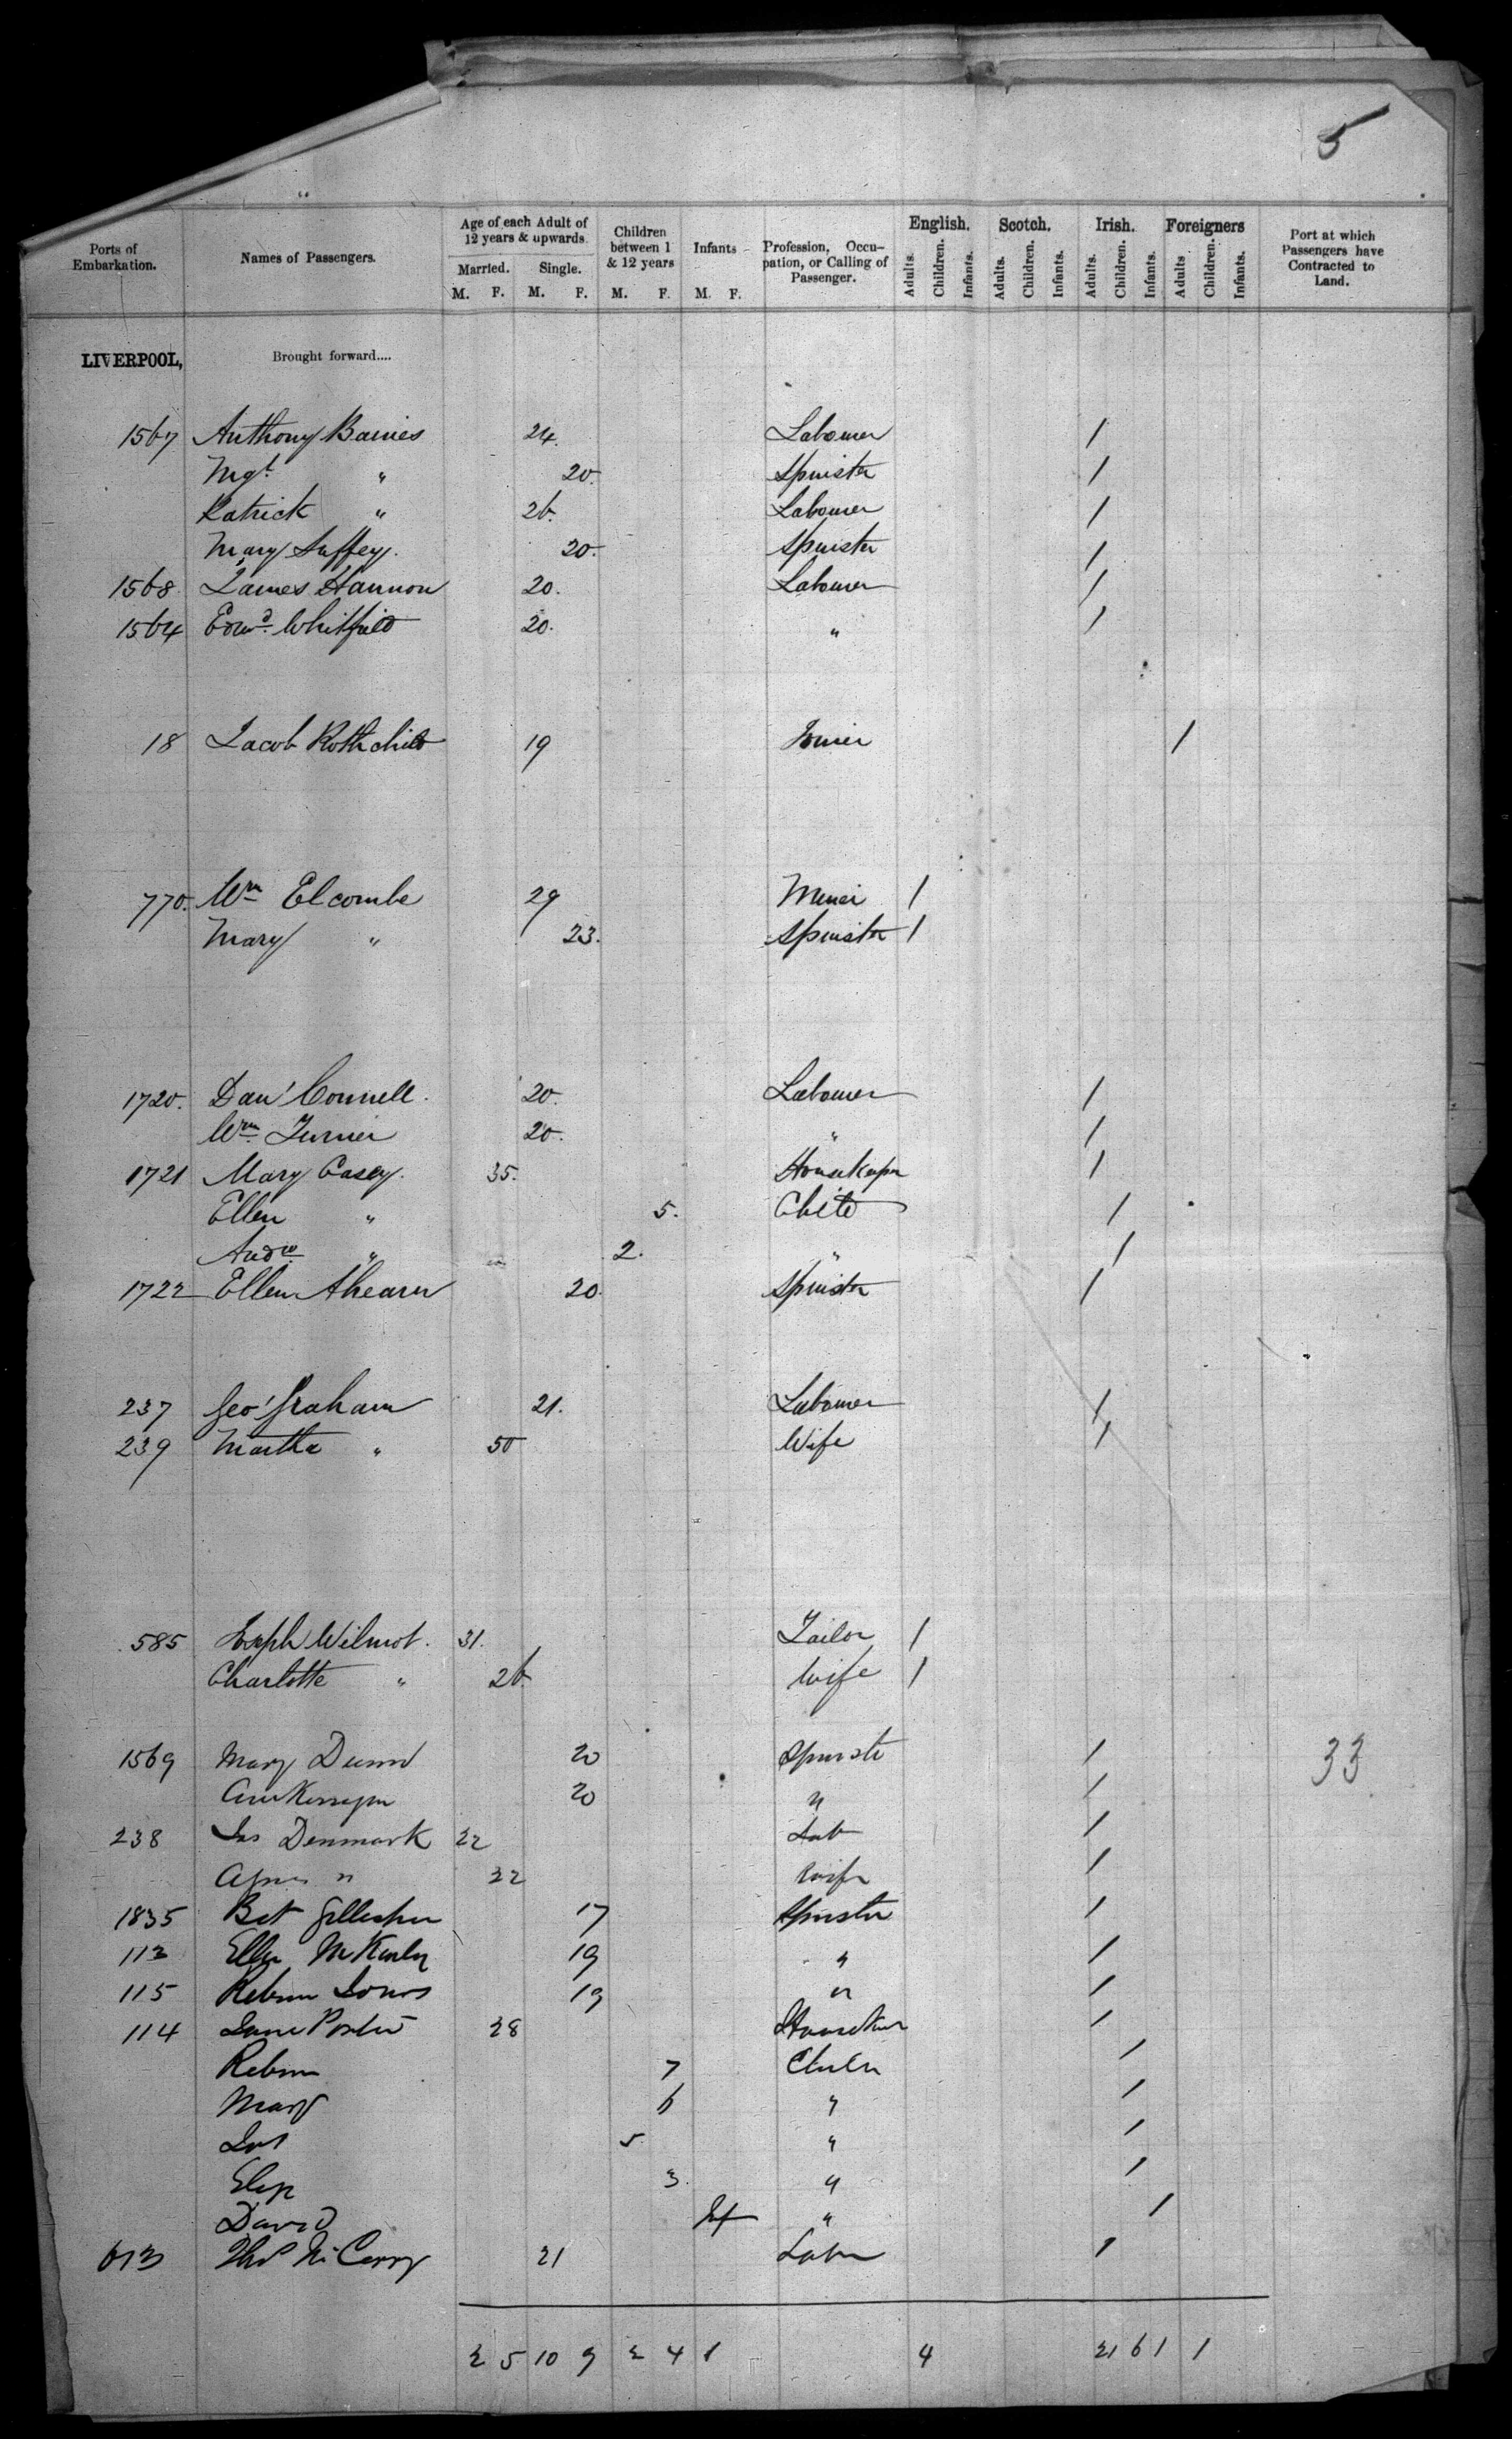 5
Ports of Embarkation. Names of Passengers. Age of each Adult of 12 years & upwards. Married. M. F. Single. M. F. Children between 1 & 12 years M. F. Infants M. F. Profession, Occupation, or Calling of Passenger. English. Adults. Children. Infants. Scotch. Adults. Children. Infants. Irish. Adults. Children. Infants. Foreigners Adults Children. Infants. Port at which Passengers have Contracted to Land.
LIVERPOOL, Brought forward....
1567 Anthony Baines 24. Labourer 1
Mgt " 20. Spinster 1
Patrick " 26. Labourer 1
Mary 20. Spinster 1
1568 James Hannon 20. Labourer 1
1564 Edwd. Whitfield 20. " 1
18 Jacob Rothchild 19 Joiner 1
770. Wm Elcombe 29 Miner 1
Mary " 23. Spinster 1
1720. Danl Connell. 20. Labourer 1
Wm. Turner 20. " 1
1721 Mary Casey. 35. Housekeeper 1
Ellen " 5. Child 1
Andw " 2. " 1
1722 Ellen Ahearn 20. Spinster 1
237 Geo Graham 21. Labourer 1
239 Martha " 50 Wife 1
585 Joseph Wilmot. 31. Tailor 1
Charlotte " 26. Wife 1
1569 Mary Dunn 20 Spinster 1
Ann 20 " 1
33
238 Jas Denmark 22 Lab 1
Agnes " 22 Wife 1
1835 Bet Gillespie 17 Spinster 1
113 Ellen McKinley 19 " 1
115 19 " 1
114 Jane Porter 28 1
7 1
Mary 6 " 1
Jas 5 " 1
Eliza 3. " 1
David Inf " 1
613 Thos McCarry 21 Labr 1
2 5 10 9 2 4 1 4 21 6 1 1